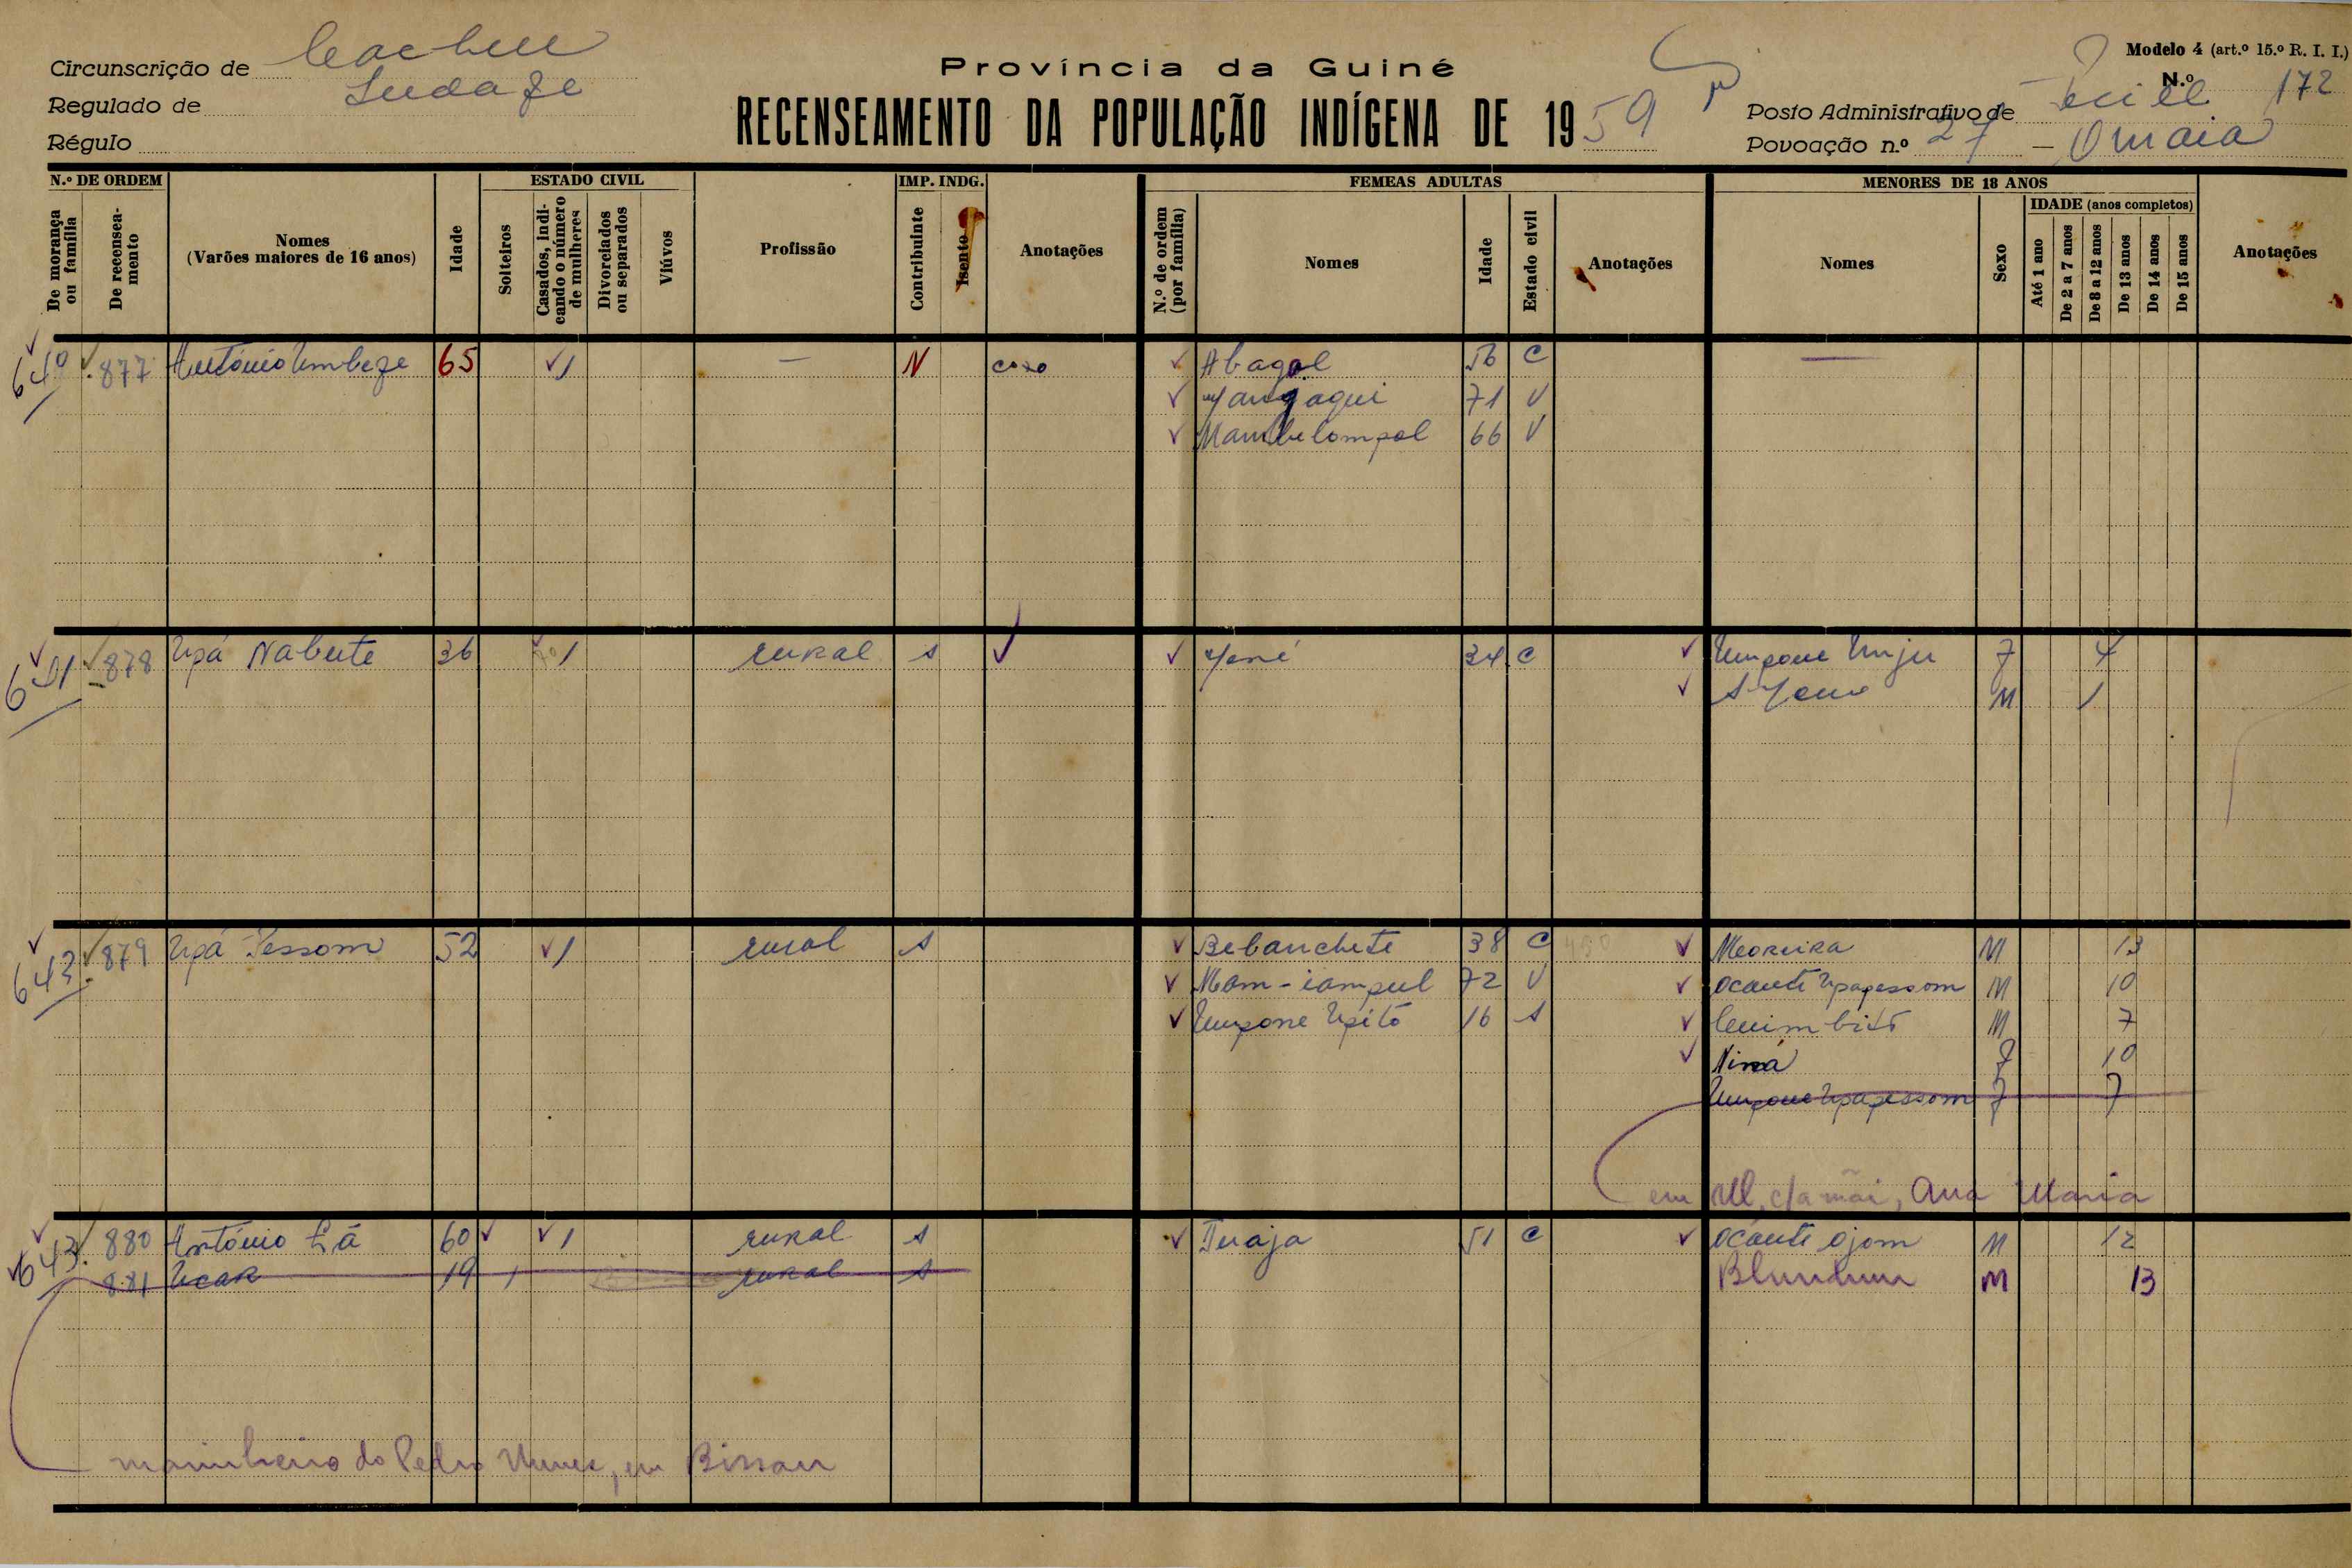 Modelo 4 (art.º 15.º R. I. I.)
Circunscrição de Cacheu
Província da Guiné
N.º 172
Regulado de
RECENSEAMENTO DA POPULAÇÃO INDÍGENA DE 1959
Posto Administrativo de
Régulo
Povoação n.º 27 - Omaia
N.º DE ORDEM
ESTADO CIVIL
IMP. INDG.
FEMEAS ADULTAS
MENORES DE 18 ANOS
IDADE (anos completos)
De morança ou família
De recenseamento
Nomes
(Varões maiores de 16 anos)
Idade
Solteiros
Casados, indicando o número de mulheres
Divorciados ou separados
Viúvos
Profissão
Contribuinte
Isento
Anotações
N.º de ordem (por família)
Nomes
Idade
Estado civil
Anotações
Nomes
Sexo
Até 1 ano
De 2 a 7 anos
De 8 a 12 anos
De 13 anos
De 14 anos
De 15 anos
Anotações
640 877 António Umbeze 65 1 — N coxo Abagal 56 C —
71 V
66 V
641 878 Upá Nabute 36 1 rural S 34 C F 4
M 1
642 879 Upá Pessom 52 1 rural S Bebanchete 38 C M 13
Mam-iampul 72 V Ocante Upapessom M 10
Umpone Upitó 16 S M 7
Nimá F 10
Umpone Upapessom F 7
em c/a mãi, Ana Maria
643 880 António Cá 60 1 rural S 51 C Ocante Ojom M 12
881 Ucar 19 1 rural S M 13
marinheiro do Pedro Nunes, em Bissau